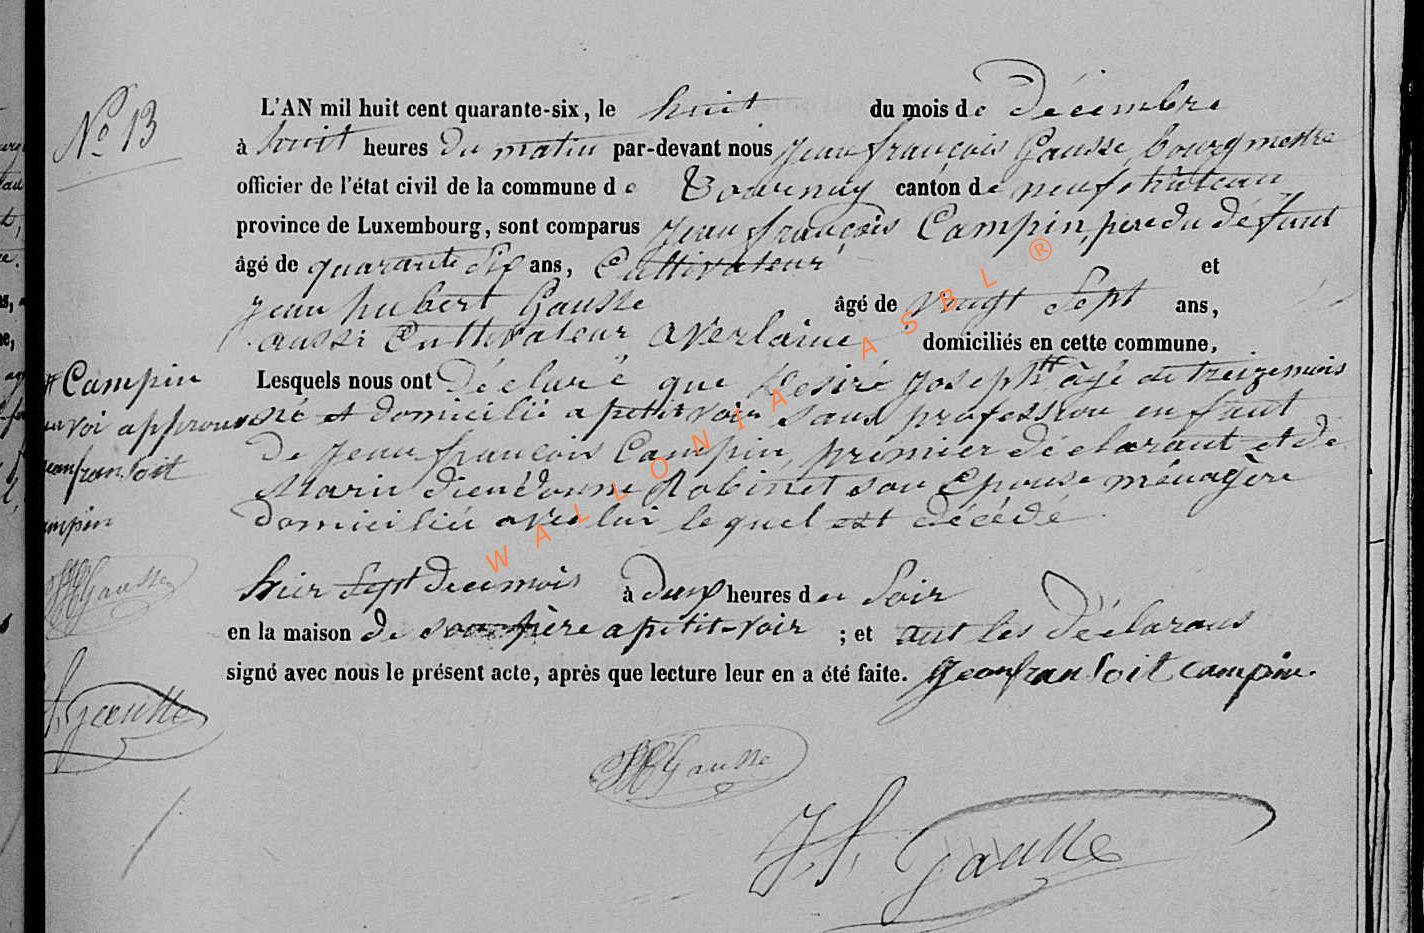 No 13
L'AN mil huit cent quarante-six, le huit du mois de Décembre
à huit heures du matin par-devant nous Jean françois Gausse bourgmestre
officier de l'état civil de la commune de Tournay canton de neufchâteau
province de Luxembourg, sont comparus Jean françois Campin, pere du défunt
âgé de quarante six ans, Cultivateur et
Jean hubert Gausse âgé de vingt Sept ans,
aussi Cultivateur a verlaine domiciliés en cette commune,
Lesquels nous ont Déclaré que Désiré Joseph # âgé de treize mois
né et domicilié a petitvoir sans profession enfant
De Jean françois Campin, premier déclarant et de
Marie dieudonne Robinet son Epouse ménagère
domiciliée avec lui lequel est décédé
hier Sept decemois à deux heures du Soir
en la maison de son père a petit-voir ; et ont les Déclarans
signé avec nous le présent acte, après que lecture leur en a été faite. Jeanfransoit campin
# Campin
voi approuvé
jeanfransoit
ampin
JHGausse
f. Gausse
JHGausse
J. f. Gausse
WALLONIA ASBL ®